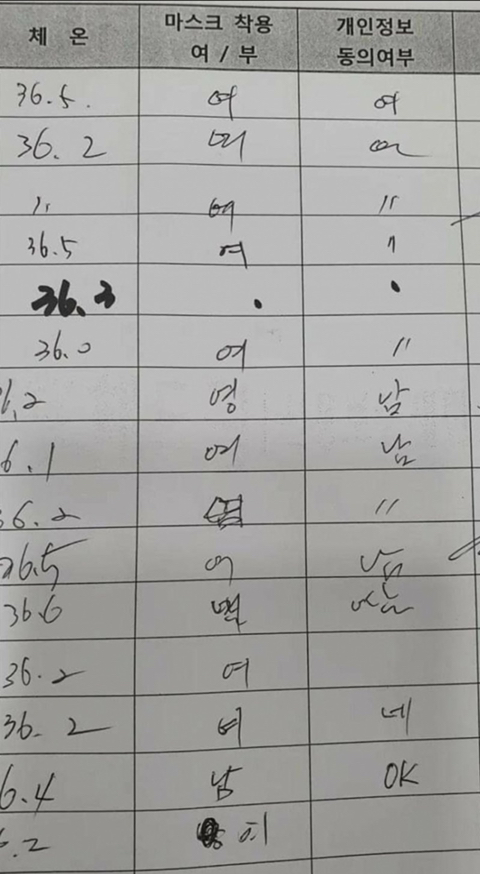 체 온 마스크 착용 여 / 부 개인정보 동의여부
36.5. 여 여
36.2 여
〃 여 〃
36.5 여 〃
36.3 . .
36.0 여 〃
36.2 영 남
6.1 여 남
36.2 〃
36.5 여 남
36.6
36.2 여
36.2 여 네
6.4 남 OK
6.2